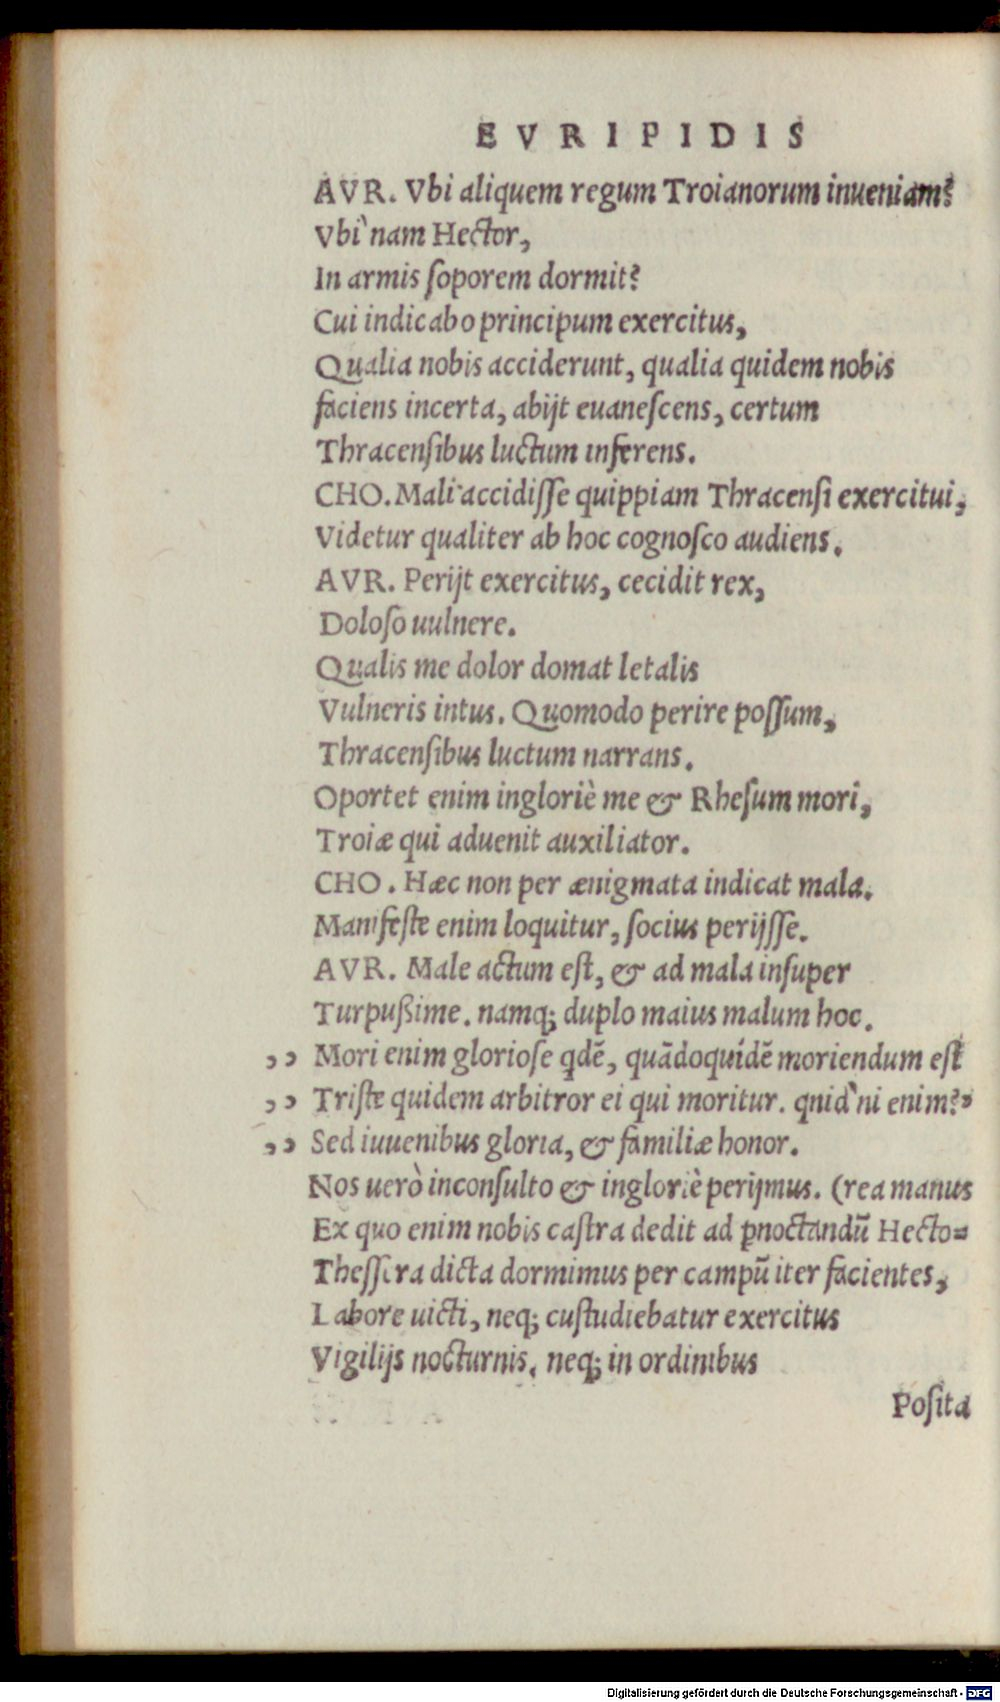 EVRIPIDIS
AVR. Vbi aliquem regum Troianorum inueniam?
Vbi`nam Hector,
In armis ſoporem dormit?
Cui indicabo principum exercitus,
Qualia nobis acciderunt, qualia quidem nobis
faciens incerta, abijt euaneſcens, certum
Thracenſibus luctum inferens.
CHO. Mali accidiſſe quippiam Thracenſi exercitui,
Videtur qualiter ab hoc cognoſco audiens.
AVR. Perijt exercitus, cecidit rex,
Doloſo uulnere.
Qualis me dolor domat letalis
Vulneris intus. Quomodo perire poſſum,
Thracenſibus luctum narrans.
Oportet enim ingloriè me & Rheſum mori,
Troiæ qui aduenit auxiliator.
CHO. Hæc non per ænigmata indicat mala.
Manifeſte enim loquitur, ſocius perijſſe.
AVR. Male actum eſt, & ad mala inſuper
Turpußime. namq; duplo maius malum hoc.
,, Mori enim glorioſe qdẽ, quãdoquidẽ moriendum eſt
,, Triſte quidem arbitror ei qui moritur. qnid`ni enim?
,, Sed iuuenibus gloria, & familiæ honor.
Nos uerò inconſulto & ingloriè perijmus. (rea manus
Ex quo enim nobis caſtra dedit ad ꝑnoctandũ Hecto=
Theſſera dicta dormimus per campũ iter facientes,
Labore uicti, neq; cuſtudiebatur exercitus
Vigilijs nocturnis. neq; in ordinibus
Poſita
Digitalisierung gefördert durch die Deutsche Forschungsgemeinschaft - DFG